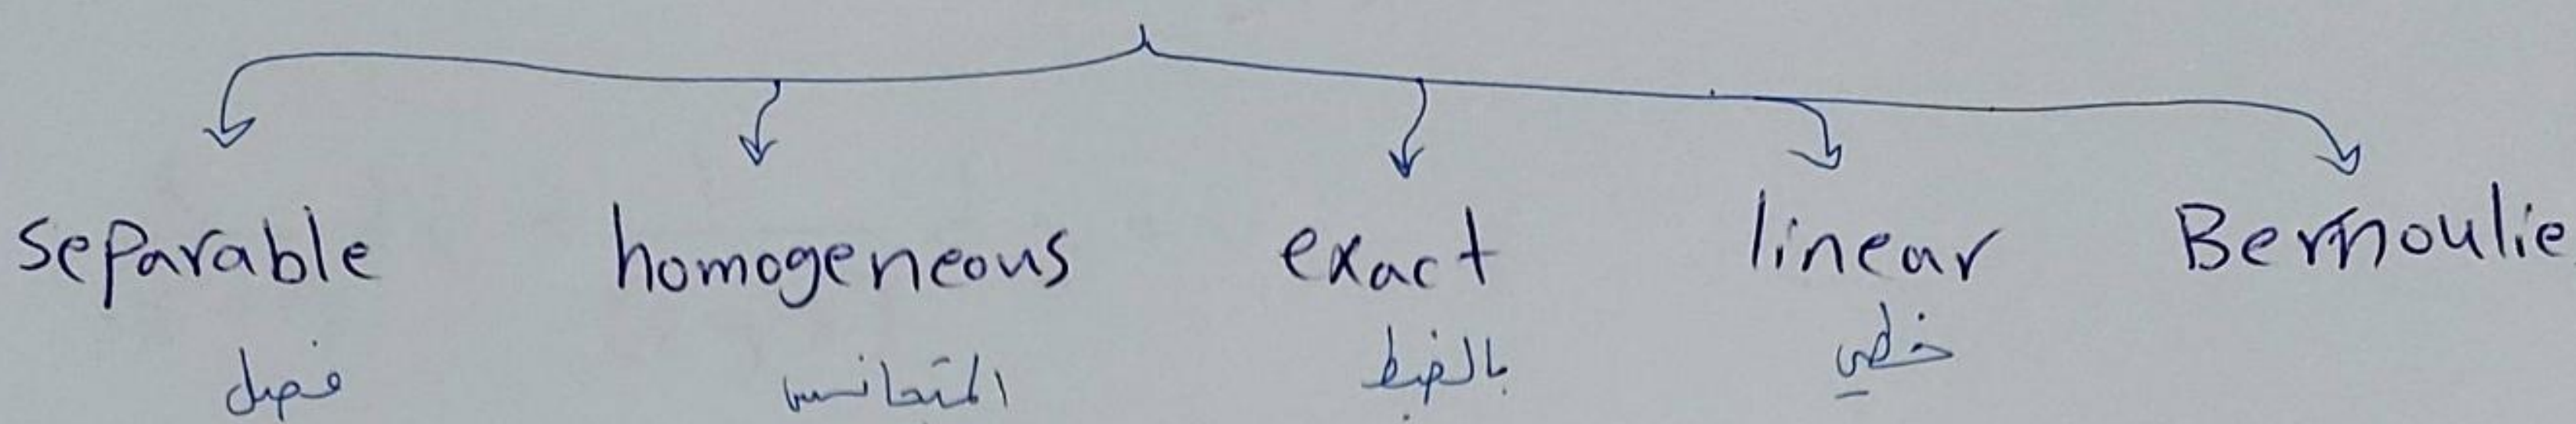 separable homogeneous exact linear Bernoulie
فصل المتجانس بالضبط خطي